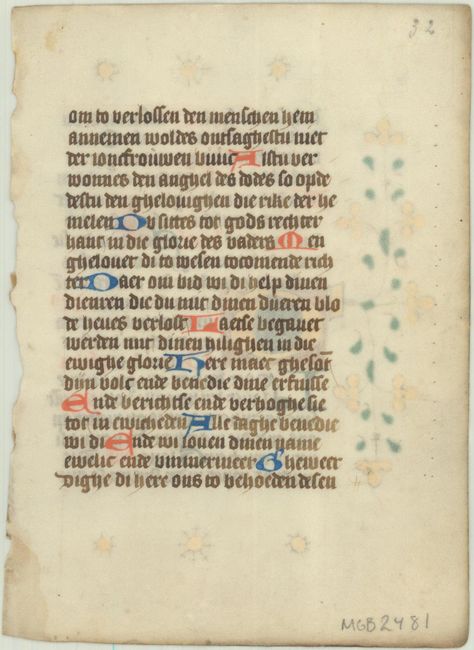 32
om to verlossen den menschen hem
annemen woldes ontsaghestu niet
der ioncfrouwen buuc Alstu ver
wonnes den anghel des dodes so opde
destu den ghelovighen die rike der he
melen Du sittes tor gods rechter
hant in die glorie des vaders Men
ghelovet di to wesen tocomende rich
ter Daer om bid wi di help dinen
dienren die du mit dinen dueren blo
de heves verlost Laetse begavet
werden mit dinen hilighen in die
ewighe glorie Here maec ghesont
dijn volc ende benedie dine erfnisse
Ende berichtse ende verhoghe sie
tot in ewicheden Alle daghe benedie
wi di Ende wi loven dinen name
ewelic ende ummermeer Gheweer
dighe di here ons to behoeden desen
MGB 2481